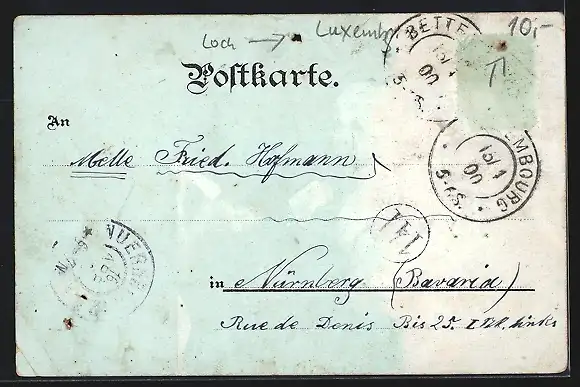 10,-
Loch → Luxembg
BETTE
15/1
00
5-6S.
Postkarte.
An
Melle Fried. Hofmann
MBOURG
15/1
00
5-6S.
NUERNB
16
in Nürnberg (Bavaria)
Rue de Denis Bis 25. I links